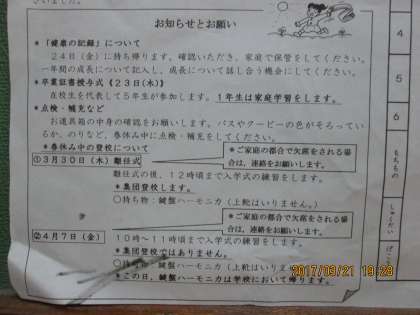 お知らせとお願い
*「健康の記録」について
24日(金)に持ち帰ります。確認いただき、家庭で保管をしてください。
一年間の成長について記入し、成長について話し合う機会にしてください。
*卒業証書授与式《23日(木)》
在校生を代表して5年生が参加します。1年生は家庭学習をします。
*点検・補充など
お道具箱の中身の確認をお願いします。パスやクーピーの色がそろっているか、のりなど、春休み中に点検・補充をしてください。
*春休み中の登校について
①3月30日(木)離任式
*ご家庭の都合で欠席をされる場合は、連絡をお願いします。
離任式の後、12時頃まで入学式の練習をします。
*集団登校します。
○持ち物:鍵盤ハーモニカ(上靴はいりません。)
*ご家庭の都合で欠席をされる場合は、連絡をお願いします。
②4月7日(金)
10時~11時頃まで入学式の練習をします。
*集団登校ではありません。
物:鍵盤ハーモニカ(上靴はいりま
*この日、鍵盤ハーモニカは学校において帰ります。
4
5
6
もちもの
しゅくだい
2017/03/21 19:28